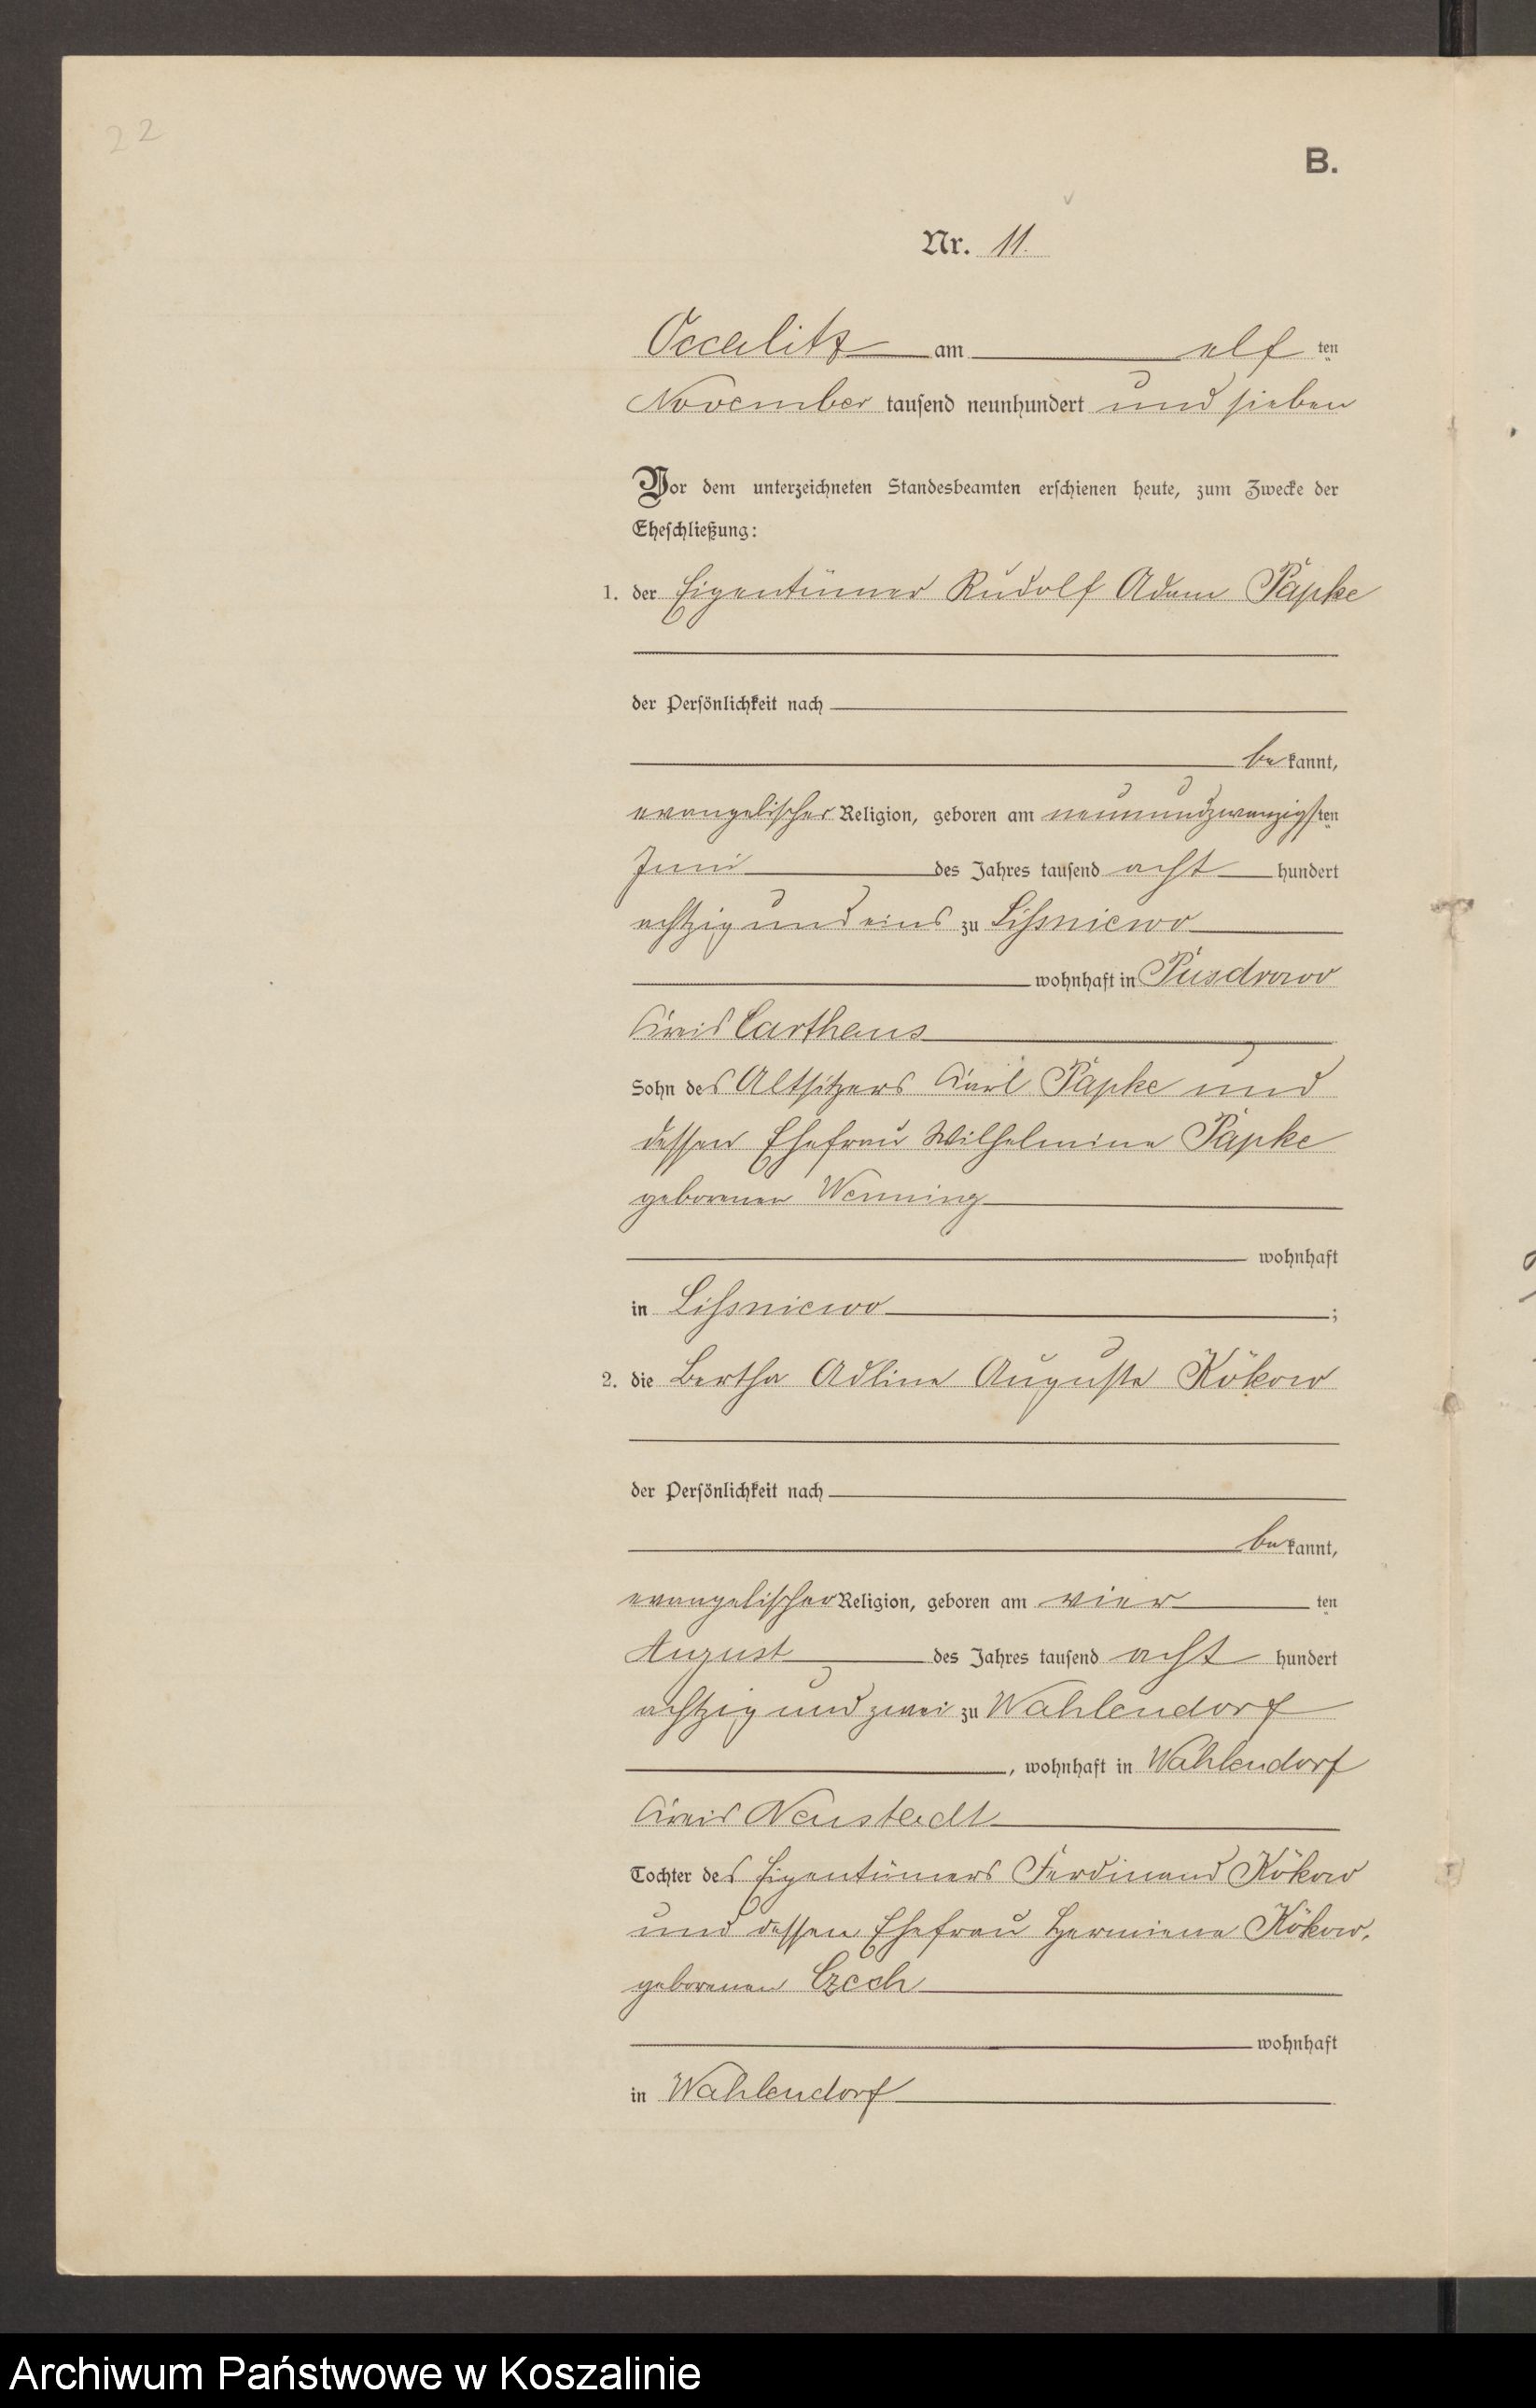 22
B.
Nr. 11.
Occalitz am elf ten
November tausend neunhundert und sieben
Vor dem unterzeichneten Standesbeamten erschienen heute, zum Zwecke der
Eheschließung:
1. der Eigentümer Rudolf Adam Päpke
der Persönlichkeit nach
be kannt,
evangelischer Religion, geboren am neunundzwanzigsten
Juni des Jahres tausend acht hundert
achtzig und eins zu Lissniewo
wohnhaft in Pusdrowo
Kreis Carthaus
Sohn des Altsitzers Karl Päpke und
dessen Ehefrau Wilhelmine Päpke
geborenen Wenning
wohnhaft
in Lissniewo ;
2. die Bertha Adline Auguste Kökow
der Persönlichkeit nach
be kannt,
evangelischer Religion, geboren am vier ten
August des Jahres tausend acht hundert
achtzig und zwei zu Wahlendorf
, wohnhaft in Wahlendorf
Kreis Neustadt
Tochter des Eigentümers Ferdinand Kökow
und dessen Ehefrau Hermiene Kökow,
geborenen Czech
wohnhaft
in Wahlendorf
Archiwum Państwowe w Koszalinie